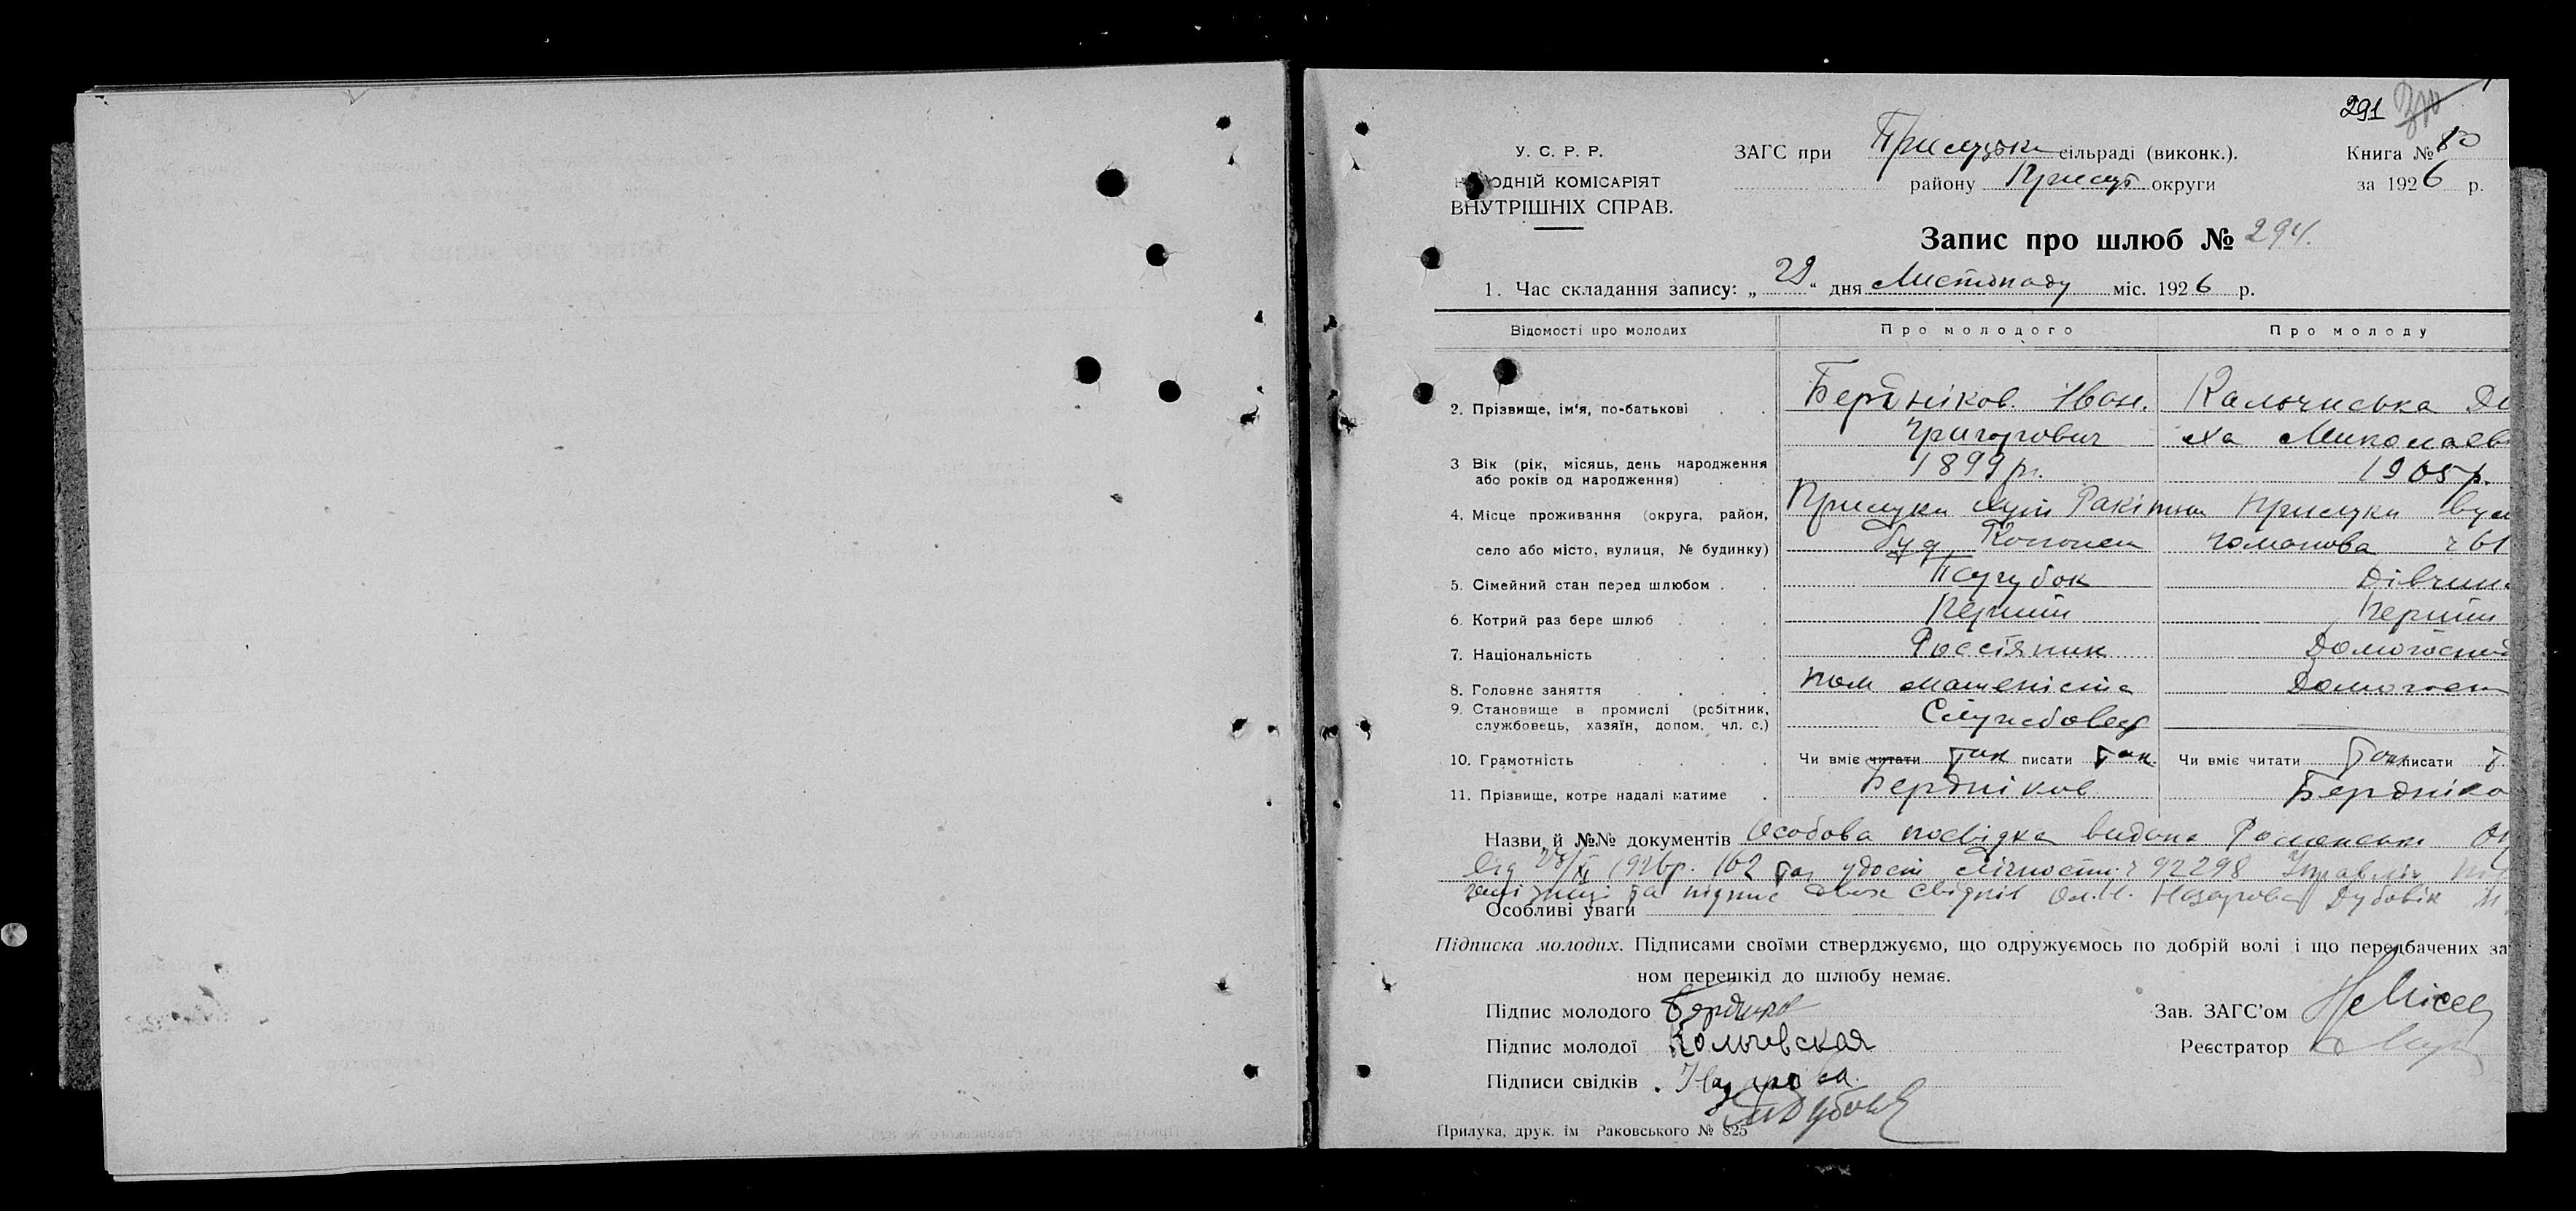 291
У. С. Р. Р.
ЗАГС при Прилуцькі сільраді (виконк.).
Книга № 80
НАРОДНІЙ КОМІСАРІЯТ
району Прилуц округи
за 1926 р.
ВНУТРІШНІХ СПРАВ.
Запис про шлюб № 294.
1. Час складання запису: „29“ дня Листопаду міс. 1926 р.
Відомості про молодих
Про молодого
Про молоду
2. Прізвище, ім'я, по-батькові
Бердніков Іван.
Григорович
Кальчиська
Миколаєв
3 Вік (рік, місяць, день народження
або років од народження)
1899 р.
1905 р.
4. Місце проживання (округа, район,
село або місто, вулиця, № будинку)
Прилуки Ракітна
буд
Прилуки вул
ч 61
5. Сімейний стан перед шлюбом
Парубок
Дівчина
6. Котрий раз бере шлюб
Перший
Перший
7. Національність
Россіянин
Домогоспод
8. Головне заняття
Пом машеніста
Домогосп
9. Становище в промислі (робітник,
службовець, хазяїн, допом. чл. с.)
Службовец
10. Грамотність
Чи вміє читати так писати так.
Чи вміє читати так писати т
11. Прізвище, котре надалі матиме
Бердніков
Бердніко
Назви й №№ документів Особова посвідка видана Роменськ
від 23/XI 1926 р. 162 та удост лічности ч 92298 Управлін
та підпис двох свідків Ол. Н. Назарова Дубовік М.
Особливі уваги
Підписка молодих. Підписами своїми стверджуємо, що одружуємось по добрій волі і що передбачених за
ном перешкід до шлюбу немає.
Підпис молодого Бердніков
Зав. ЗАГС'ом
Підпис молодої Кольчевская
Реєстратор
Підписи свідків Назарова
МДубовік
Прилука, друк. ім Раковського № 825